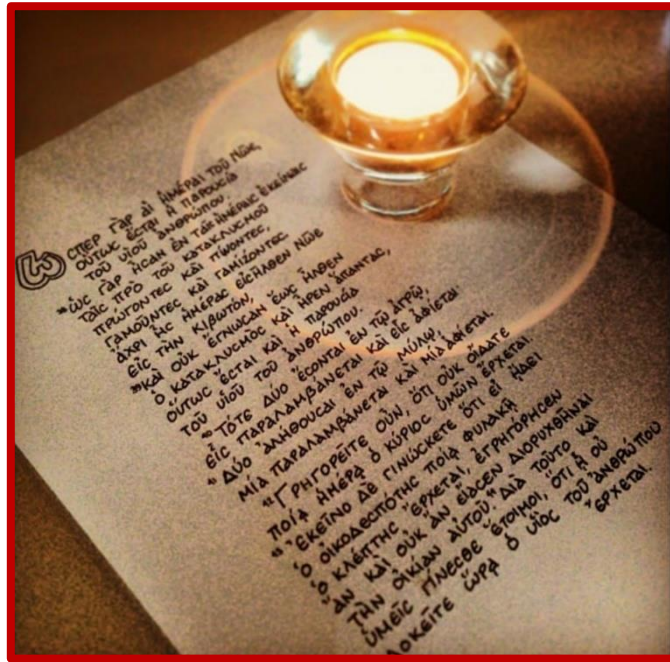 ὭCΠΕΡ ΓᾺΡ ΑἹ ἩΜΈΡΑΙ ΤΟῦ ΝῶΕ,
ΟὕΤΩC ἜCΤΑΙ Ἡ ΠΑΡΟΥCΊΑ
ΤΟῦ ΥἱΟῦ ἈΝΘΡΏΠΟΥ.
"ὡC ΓᾺΡ ἮCΑΝ ἘΝ ΤΑῖC ἩΜΈΡΑΙC ἘΚΕΊΝΑΙC
ΤΑῖC ΠΡῸ ΤΟῦ ΚΑΤΑΚΛΥCΜΟῦ
ΤΡΏΓΟΝΤΕC ΚΑῚ ΠΊΝΟΝΤΕC,
ΓΑΜΟῦΝΤΕC ΚΑῚ ΓΑΜΊΖΟΝΤΕC
ἌΧΡΙ ἯC ἩΜΈΡΑC ΕἰCῆΛΘΕΝ ΝῶΕ
ΕἰC ΤῊΝ ΚΙΒΩΤΌΝ,
"ΚΑῚ ΟὐΚ ἜΓΝΩCΑΝ ἝΩC ἮΛΘΕΝ
Ὁ ΚΑΤΑΚΛΥCΜΌC ΚΑῚ ἮΡΕΝ ἍΠΑΝΤΑC,
ΟὕΤΩC ἜCΤΑΙ ΚΑῚ Ἡ ΠΑΡΟΥCΊΑ
ΤΟῦ ΥἱΟῦ ΤΟῦ ἈΝΘΡΏΠΟΥ.
"ΤΌΤΕ ΔΎΟ ἜCΟΝΤΑΙ ἘΝ Τῷ ἈΓΡῷ,
ΕἷC ΠΑΡΑΛΑΜΒΆΝΕΤΑΙ ΚΑῚ ΕἷC ἈΦΊΕΤΑΙ·
"ΔΎΟ ἈΛΉΘΟΥCΑΙ ἘΝ Τῷ ΜΎΛῳ,
ΜΊΑ ΠΑΡΑΛΑΜΒΆΝΕΤΑΙ ΚΑῚ ΜΊΑ ἈΦΊΕΤΑΙ.
"ΓΡΗΓΟΡΕῖΤΕ ΟὖΝ, ὍΤΙ ΟὐΚ ΟἴΔΑΤΕ
ΠΟΊᾳ ἩΜΈΡᾳ Ὁ ΚΎΡΙΟC ὑΜῶΝ ἜΡΧΕΤΑΙ.
"ἘΚΕῖΝΟ ΔῈ ΓΙΝΏCΚΕΤΕ ὍΤΙ Εἰ ᾜΔΕΙ
Ὁ ΟἰΚΟΔΕCΠΌΤΗC ΠΟΊᾳ ΦΥΛΑΚῇ
Ὁ ΚΛΈΠΤΗC ἜΡΧΕΤΑΙ, ἘΓΡΗΓΌΡΗCΕΝ
ἊΝ ΚΑῚ ΟὐΚ ἊΝ ΕἴΑCΕΝ ΔΙΟΡΥΧΘῆΝΑΙ
ΤῊΝ ΟἰΚΊΑΝ ΑὐΤΟῦ. "ΔΙᾺ ΤΟῦΤΟ ΚΑῚ
ὑΜΕῖC ΓΊΝΕCΘΕ ἝΤΟΙΜΟΙ, ὍΤΙ ᾗ Οὐ
ΔΟΚΕῖΤΕ ὭΡᾳ Ὁ ΥἱὸC ΤΟῦ ἈΝΘΡΏΠΟΥ
ἜΡΧΕΤΑΙ.